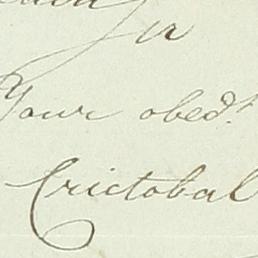 Sir
Your obedt.
Crictobal